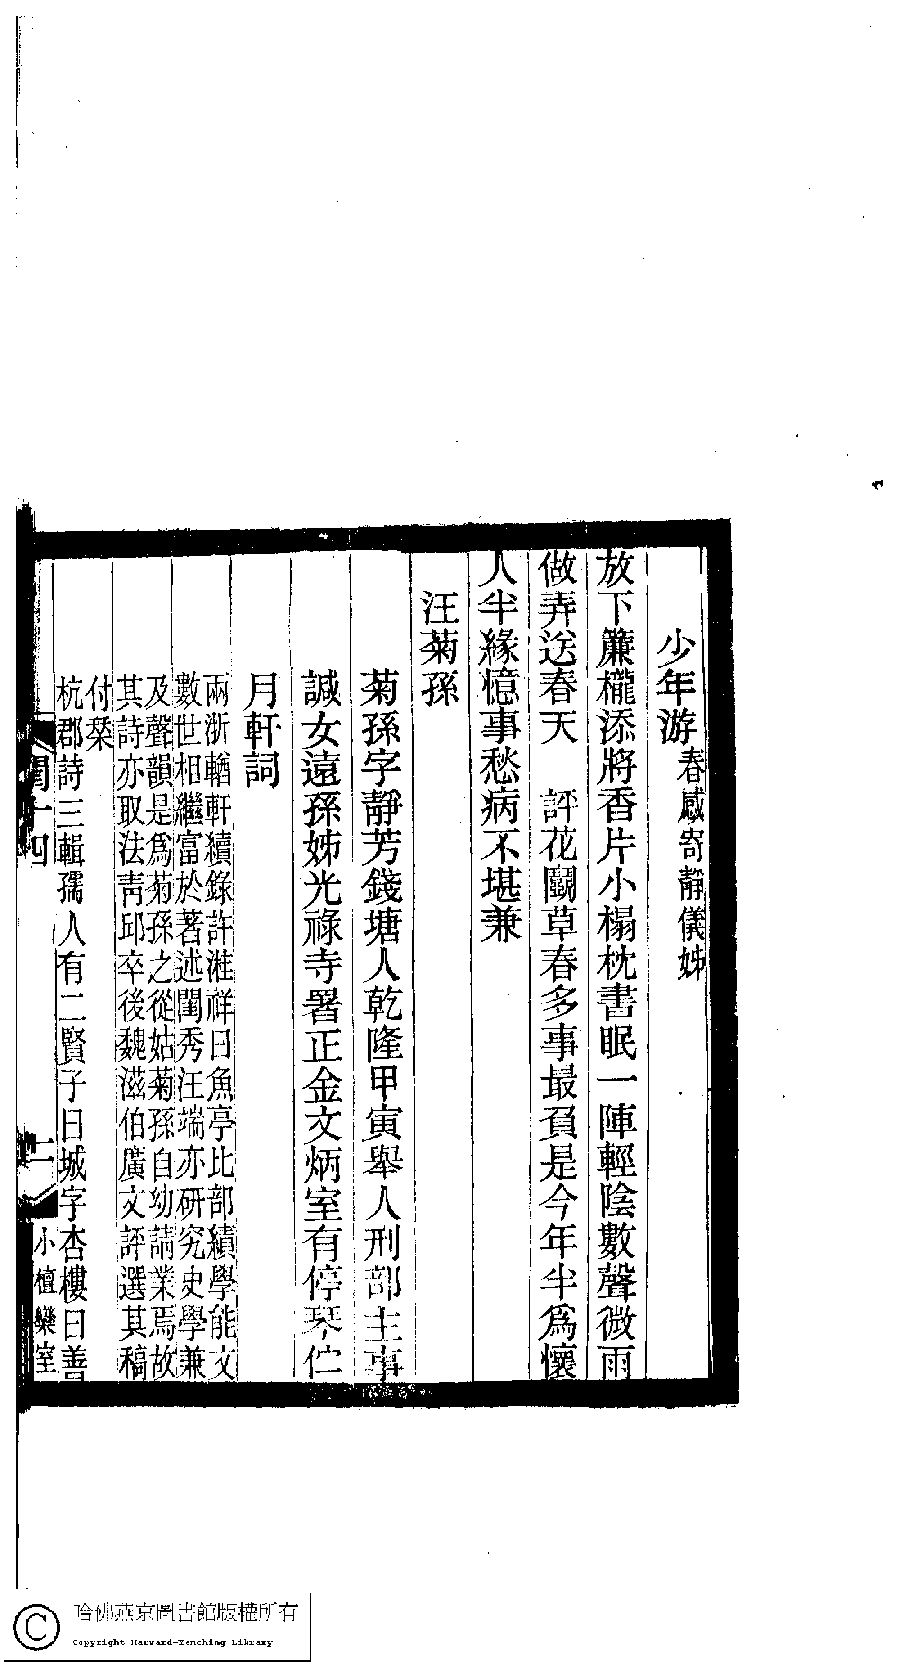 少年游春感寄靜儀姊
放下簾櫳添將香片小榻枕書眠一陣輕陰數聲微雨
做弄送春天　評花鬭草春多事最負是今年半爲懷
人半緣憶事愁病不堪兼
汪菊孫
菊孫字靜芳錢塘人乾隆甲寅舉人刑部主事
諴女遠孫姊光祿寺署正金文炳室有停琴佇
月軒詞
兩浙輶軒續錄許滙祥曰魚亭比部績學能文
數世相繼富於著述閨秀汪端亦研究史學兼
及聲韻是爲菊孫之從姑菊孫自幼請業焉故
其詩亦取法靑邱卒後魏滋伯廣文評選其稿
付棨
杭郡詩三輯孺人有二賢子曰城字杏樓曰善
閨十四
二
小檀欒室
哈佛燕京圖書館版權所有
Copyright Harvard-Yenching Library